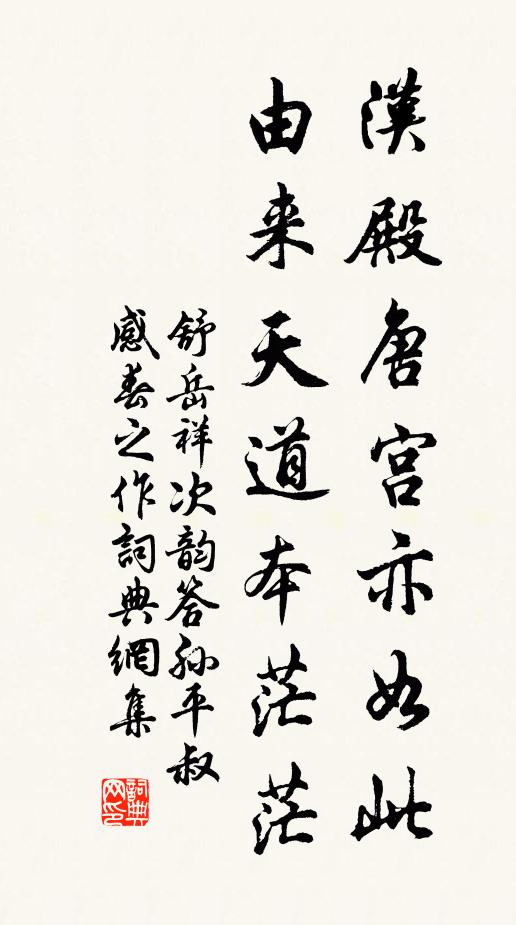 漢殿唐宮亦如此
由来天道本茫茫
舒岳祥次韵答孫平叔
感春之作詞典網集
詞典網印